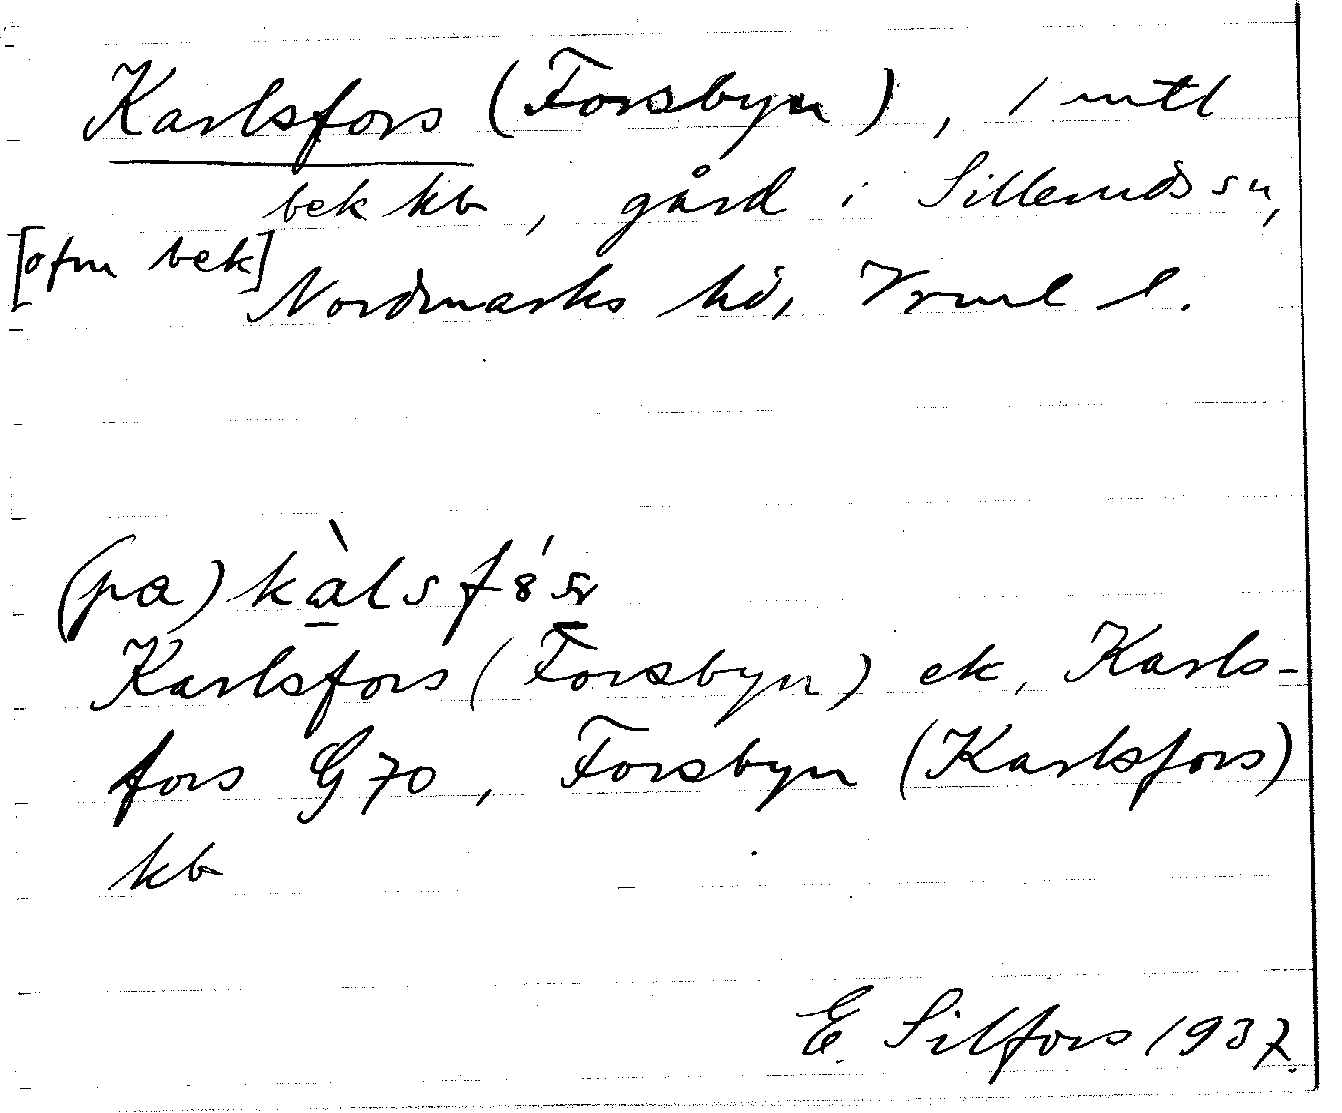 Karlsfors (Forsbyn), 1 mtl
bek kb, gård i Sillerudssn,
[ofm bek] Nordmarks hd, Vrml l.
(pa) kàlsfó
Karlsfors (Forsbyn) ek, Karls-
fors G70, Forsbyn (Karlsfors)
kb
E. Silfors 1937.